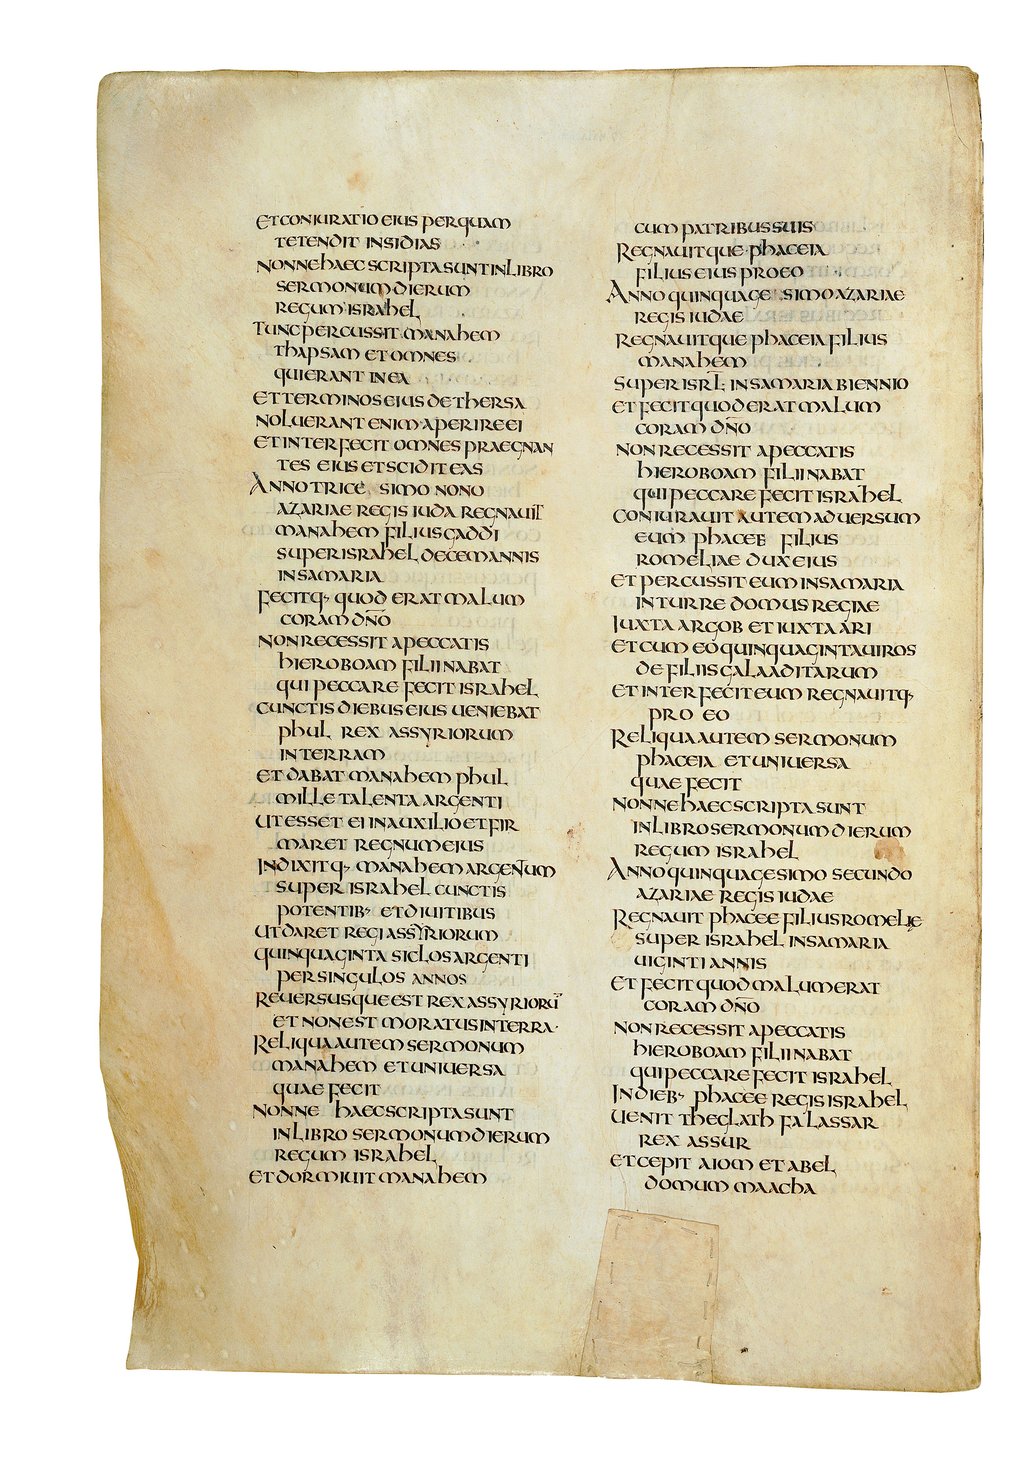 et coniuratio eius per quam
tetendit insidias
nonne haec scripta sunt in libro
sermonum dierum
regum israhel
tunc percussit manahem
thapsam et omnes
qui erant in ea
et terminos eius de thersa
noluerant enim aperire ei
et interfecit omnes praegnan
tes eius et scidit eas
Anno tricesimo nono
azariae regis iuda regnauit
manahem filius gaddi
super israhel decem annis
in samaria
fecitq· quod erat malum
coram dn̄o
non recessit a peccatis
hieroboam filii nabat
qui peccare fecit israhel
cunctis diebus eius ueniebat
phul rex assyriorum
in terram
et dabat manahem phul
mille talenta argenti
ut esset ei in auxilio et fir
maret regnum eius
Indixitq· manahem argentum
super israhel cunctis
potentib· et diuitibus
ut daret regi assyriorum
quinquaginta siclos argenti
per singulos annos
reuersusque est rex assyriorū
et non est moratus in terra·
Reliqua autem sermonum
manahem et uniuersa
quae fecit
nonne haec scripta sunt
in libro sermonum dierum
regum israhel
et dormiuit manahem
cum patribus suis
Regnauitque phaceia
filius eius pro eo
Anno quinquagesimo azariae
regis iudae
Regnauitque phaceia filius
manahem
super isrl̄· in samaria biennio
et fecit quod erat malum
coram dn̄o
non recessit a peccatis
hieroboam filii nabat
qui peccare fecit israhel
coniurauit autem aduersum
eum phacee filius
romeliae dux eius
et percussit eum in samaria
in turre domus regiae
iuxta argob et iuxta ari
et cum eo quinquaginta uiros
de filiis galaaditarum
et interfecit eum regnauitq·
pro eo
Reliqua autem sermonum
phaceia et uniuersa
quae fecit
nonne haec scripta sunt
in libro sermonum dierum
regum israhel
Anno quinquagesimo secundo
azariae regis iudae
Regnauit phacee filius romelie
super israhel in samaria
uiginti annis
et fecit quod malum erat
coram dn̄o
non recessit a peccatis
hieroboam filii nabat
qui peccare fecit israhel
In dieb· phacee regis israhel
uenit theglath falassar
rex assur
et cepit aiom et abel
domum maacha